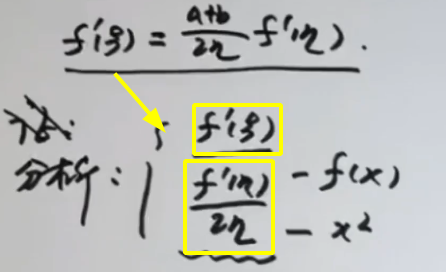 f'(ξ) = \frac{a+b}{2η} f'(η).
f'(ξ)
分析: { \frac{f'(η)}{2η} - f(x)
- x²